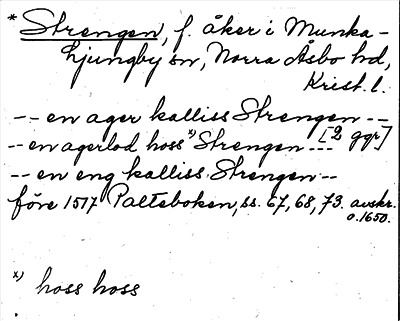 * Strengen, f. åker i Munka-
Ljungby sn, Norra Åsbo hd,
Krist. l.
-- en ager kalliss Strengen --
[2 ggr]
-- en agerlod hoss x) Strengen ---
-- en eng kalliss Strengen --
före 1517 Palteboken, ss. 67, 68, 73. avskr.
o. 1650.
x) hoss hoss